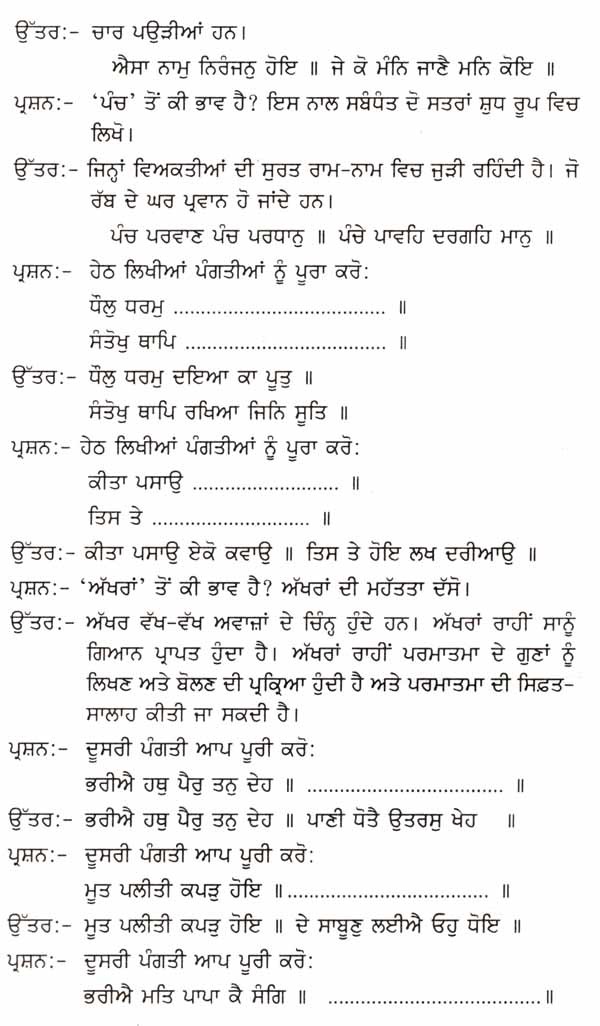 ਉੱਤਰ:- ਚਾਰ ਪਉੜੀਆਂ ਹਨ।
ਐਸਾ ਨਾਮੁ ਨਿਰੰਜਨੁ ਹੋਇ ॥ ਜੇ ਕੋ ਮੰਨਿ ਜਾਣੈ ਮਨਿ ਕੋਇ ॥
ਪ੍ਰਸ਼ਨ:- ‘ਪੰਚ’ ਤੋਂ ਕੀ ਭਾਵ ਹੈ? ਇਸ ਨਾਲ ਸਬੰਧੰਤ ਦੋ ਸਤਰਾਂ ਸ਼ੁਧ ਰੂਪ ਵਿਚ
ਲਿਖੋ।
ਉੱਤਰ:- ਜਿਨ੍ਹਾਂ ਵਿਅਕਤੀਆਂ ਦੀ ਸੁਰਤ ਰਾਮ-ਨਾਮ ਵਿਚ ਜੁੜੀ ਰਹਿੰਦੀ ਹੈ। ਜੋ
ਰੱਬ ਦੇ ਘਰ ਪ੍ਰਵਾਨ ਹੋ ਜਾਂਦੇ ਹਨ।
ਪੰਚ ਪਰਵਾਣ ਪੰਚ ਪਰਧਾਨੁ ॥ ਪੰਚੇ ਪਾਵਹਿ ਦਰਗਹਿ ਮਾਨੁ ॥
ਪ੍ਰਸ਼ਨ:- ਹੇਠ ਲਿਖੀਆਂ ਪੰਗਤੀਆਂ ਨੂੰ ਪੂਰਾ ਕਰੋ:
ਧੌਲੁ ਧਰਮੁ ....................................... ॥
ਸੰਤੋਖੁ ਥਾਪਿ ..................................... ॥
ਉੱਤਰ:- ਧੌਲੁ ਧਰਮੁ ਦਇਆ ਕਾ ਪੂਤੁ ॥
ਸੰਤੋਖੁ ਥਾਪਿ ਰਖਿਆ ਜਿਨਿ ਸੂਤਿ ॥
ਪ੍ਰਸ਼ਨ:- ਹੇਠ ਲਿਖੀਆਂ ਪੰਗਤੀਆਂ ਨੂੰ ਪੂਰਾ ਕਰੋ:
ਕੀਤਾ ਪਸਾਉ ........................... ॥
ਤਿਸ ਤੇ ............................. ॥
ਉੱਤਰ:- ਕੀਤਾ ਪਸਾਉ ਏਕੋ ਕਵਾਉ ॥ ਤਿਸ ਤੇ ਹੋਇ ਲਖ ਦਰੀਆਉ ॥
ਪ੍ਰਸ਼ਨ:- ‘ਅੱਖਰਾਂ’ ਤੋਂ ਕੀ ਭਾਵ ਹੈ? ਅੱਖਰਾਂ ਦੀ ਮਹੱਤਤਾ ਦੱਸੋ।
ਉੱਤਰ:- ਅੱਖਰ ਵੱਖ-ਵੱਖ ਅਵਾਜ਼ਾਂ ਦੇ ਚਿੰਨ੍ਹ ਹੁੰਦੇ ਹਨ। ਅੱਖਰਾਂ ਰਾਹੀਂ ਸਾਨੂੰ
ਗਿਆਨ ਪ੍ਰਾਪਤ ਹੁੰਦਾ ਹੈ। ਅੱਖਰਾਂ ਰਾਹੀਂ ਪਰਮਾਤਮਾ ਦੇ ਗੁਣਾਂ ਨੂੰ
ਲਿਖਣ ਅਤੇ ਬੋਲਣ ਦੀ ਪ੍ਰਕ੍ਰਿਆ ਹੁੰਦੀ ਹੈ ਅਤੇ ਪਰਮਾਤਮਾ ਦੀ ਸਿਫ਼ਤ-
ਸਾਲਾਹ ਕੀਤੀ ਜਾ ਸਕਦੀ ਹੈ।
ਪ੍ਰਸ਼ਨ:- ਦੂਸਰੀ ਪੰਗਤੀ ਆਪ ਪੂਰੀ ਕਰੋ:
ਭਰੀਐ ਹਥੁ ਪੈਰੁ ਤਨੁ ਦੇਹ ॥ .................................... ॥
ਉੱਤਰ:- ਭਰੀਐ ਹਥੁ ਪੈਰੁ ਤਨੁ ਦੇਹ ॥ ਪਾਣੀ ਧੋਤੈ ਉਤਰਸੁ ਖੇਹ ॥
ਪ੍ਰਸ਼ਨ:- ਦੂਸਰੀ ਪੰਗਤੀ ਆਪ ਪੂਰੀ ਕਰੋ:
ਮੂਤ ਪਲੀਤੀ ਕਪੜੁ ਹੋਇ ॥..................................... ॥
ਉੱਤਰ:- ਮੂਤ ਪਲੀਤੀ ਕਪੜੁ ਹੋਇ ॥ ਦੇ ਸਾਬੂਣੁ ਲਈਐ ਓਹੁ ਧੋਇ ॥
ਪ੍ਰਸ਼ਨ:- ਦੂਸਰੀ ਪੰਗਤੀ ਆਪ ਪੂਰੀ ਕਰੋ:
ਭਰੀਐ ਮਤਿ ਪਾਪਾ ਕੈ ਸੰਗਿ ॥ .......................................॥